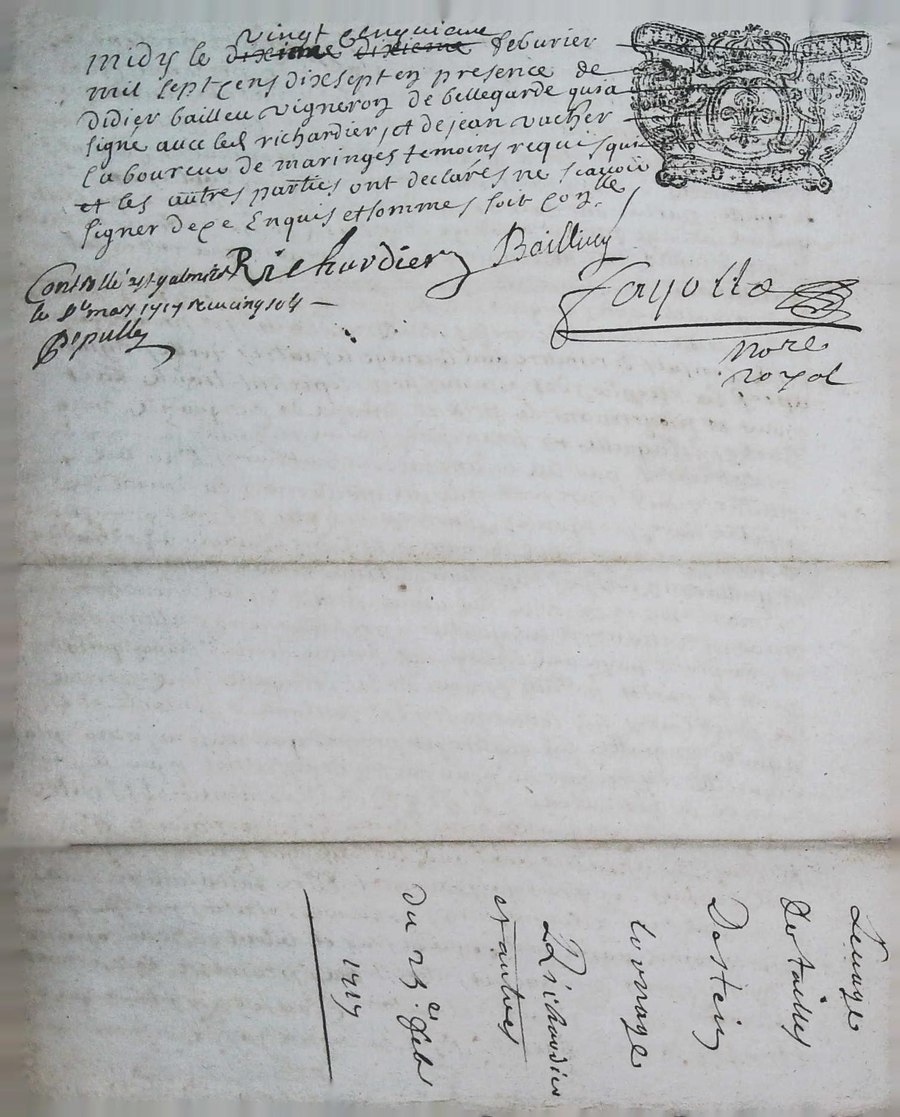 vingt cinquieme
midy le dixieme dixieme febvrier
mil sept cens dix sept en presence de
didier bailleu vigneron de bellegarde qui a
signe avec led richardier, et de jean vacher
laboureur de maringes temoins requis qui
et les autres parties ont declarés ne scavoir
signer de ce Enquis et sommes soit con.lle
Richardier
Bailliu
Controllé a st galmier
le 1er mars 1717 reçu cinq sols
Fayolle
nore
royal
DE LYON
du 25.e feb
1717
et autres
Richardier
Destein